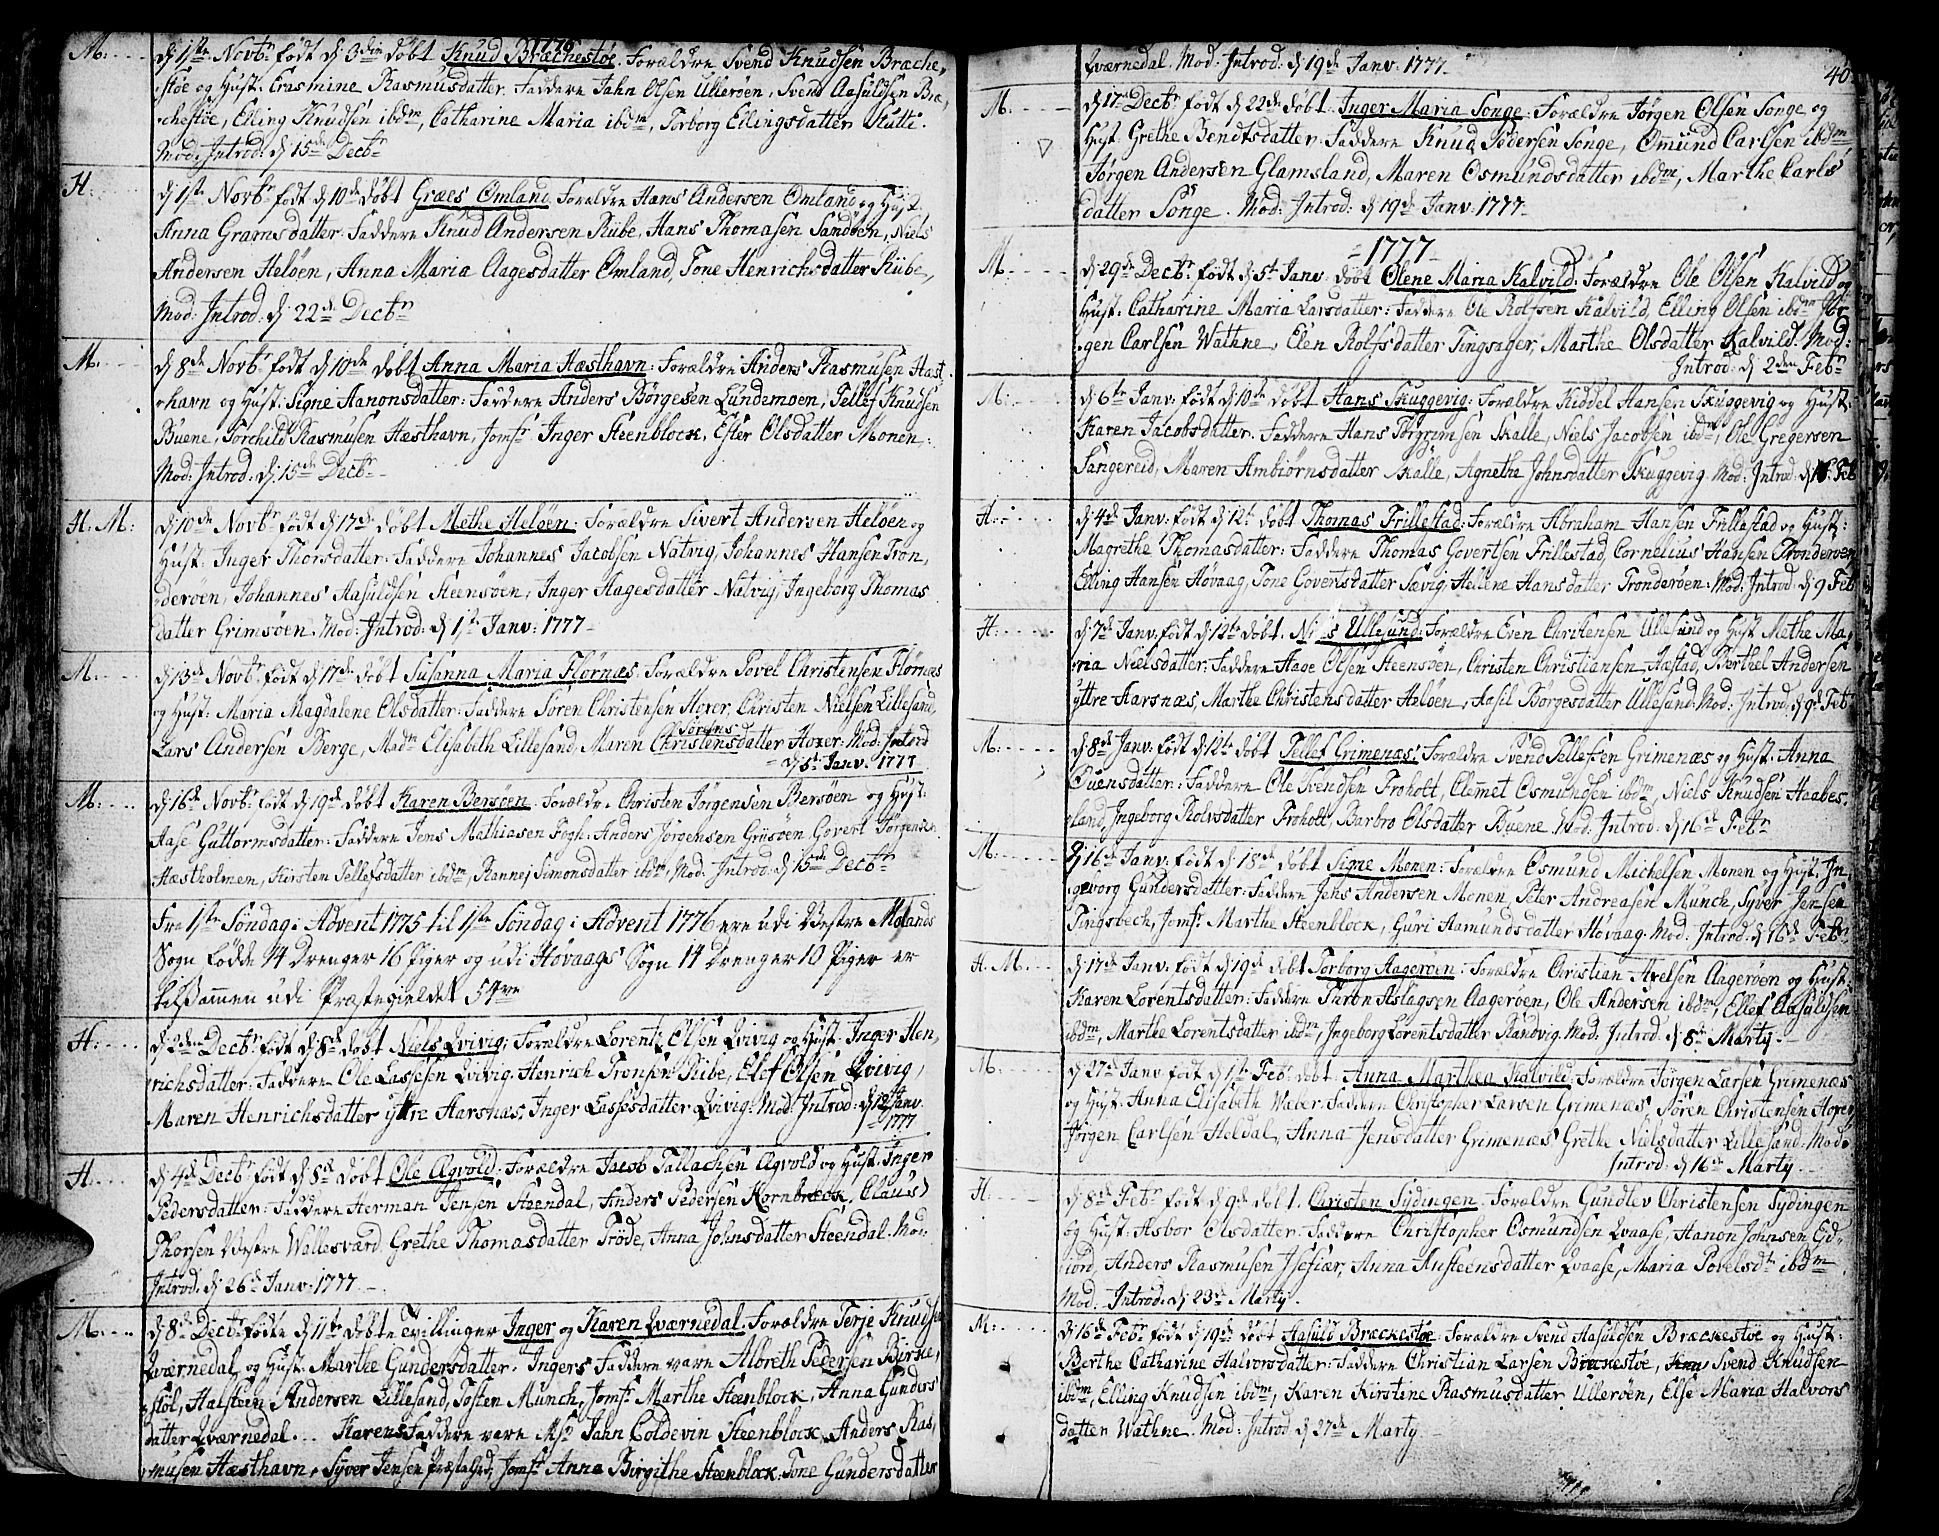 1776
M. d. 1ste Novbr født d. 3die døbt Knud Bræchestøe. Forældre Svend Knudsen Bræche,
støe og Hust: Erasmine Rasmusdatter. Faddere Jahn Olsen Ullerøen, Svend Aasuldsen Bræ,
chestøe, Elling Knudsen ibdm, Catharine Maria ibdm, Torborg Ellingsdatter Kutti.
Mod: Introd: d. 15de Decbr
H. d. 1ste Novbr født d. 10de døbt Græes Omland. Forældre Hans Andersen Omland og Hust:
Anna Gramsdatter. Faddere Knud Andersen Kube, Hans Thomasen Sandøen, Niels
Andersen Heløen, Anna Maria Aagesdatter Omland, Tone Henrichsdatter Kube,
Mod: Introd: d. 22de Decbr
M. d. 8de Novbr født d. 10de døbt Anna Maria Hæsthavn: Forældre Anders Rasmusen Hæst,
havn og Hust: Signe Aanonsdatter: Faddere Anders Børgesen Lundemoen, Tellef Knudsen
Buene, Torchild Rasmusen Hæsthavn, Jomfr Inger Steenblock, Ester Olsdatter Monen,
Mod: Introd: d. 15de Decbr
H. M: d. 10de Novbr født d. 17de døbt Methe Heløen: Forældre Sivert Andersen Heløen og
Hust: Inger Thorsdatter: Faddere Johannes Jacobsen Natvig, Johannes Hansen Tron,
derøen, Johannes Aasuldsen Steensøen, Inger Aagesdatter Natvig, Ingeborg Thomas
datter Grimsøen. Mod: Introd: d. 1ste Janv: 1777
M. d. 13de Novbr født d. 17de døbt Susanna Maria Flørnæs. Forældre Povel Christensen Flørnæs
og Hust: Maria Magdalene Olsdatter: Faddere Søren Christensen Hoxer, Christen Nielsen Lillesand,
Lars Andersen Berge, Madm Elisabeth Lillesand, Maren Christensdatter Hoxer. Mod: Introd
Sørens
d. 5t Janv: 1777
M. d. 16de Novbr født d. 19de døbt Karen Bersøen. Forældre Christen Jørgensen Bersøen og Hust:
Aase Guttormsdatter: Faddere Jens Mathiasen Fogh, Anders Jørgensen Gruøen, Govert Jørgensen
Hæstholmen, Kirsten Tellefsdatter ibdm, Rannej Simonsdatter ibdm, Mod: Introd: d. 15de Decbr
Fra 1ste Søndag i Advent 1775 til 1ste Søndag i Advent 1776 ere udi Vestre Molands
Sogn fødde 14 Drenger 16 Piger og udi Høvaags Sogn 14 Drenger 10 Piger er
tilsammen udi Præstegieldet 54re
H. d. 2den Decbr født d. 8de døbt Niels Qvivig: Forældre Lorentz Olsen Qvivig og Hust: Inger Hen,
richsdatter: Faddere Ole Lassesen Qvivig, Henrich Tronsen Kibe, Elef Olsen Qvivig,
Maren Henrichsdatter yttre Aarsnæs, Inger Lassesdatter Qvivig: Mod: Introd: d. 12te Janv.
1777
H. d. 4de Decbr født d. 8de døbt Ole Ægvold: Forældre Jacob Tallachsen Ægvold og Hust: Inger
Pedersdatter: Faddere Herman Jensen Steendal, Anders Pedersen Kornbræck, Claus
Thorsen Vestre Vallesværd, Grethe Thomasdatter Frøde, Anna Johnsdatter Steendal. Mod:
Introd: d. 26de Janv: 1777
M. d. 8de Decbr fødte d. 11te døbte tvillinger Inger og Karen Qværnedal. Forældre Terje Knudsen
Qværnedal og Hust: Marthe Gundersdatter. Ingers Faddere vare Albreth Pedersen Birke,
støl, Halsteen Andersen Lillesand, Tosten Munch, Jomfr Marthe Steenblock, Anna Gunders
datter Qværnedal... Karens Faddere vare Msr Jahn Coldevin Steenblock, Anders Ras,
musen Hæsthavn, Syver Jensen Præstegrd, Jomfr Anna Birgithe Steenblock, Tone Gundersdatter
40
Qværnedal. Mod: Introd: d. 19de Janv: 1777
M. d. 17de Decbr født d. 22de døbt Inger Maria Songe: Forældre Jørgen Olsen Songe og
Hust. Grethe Bendtsdatter: Faddere Knud Pedersen Songe, Omund Carlsen ibdm
Jørgen Andersen Glamsland, Maren Osmundsdatter ibdm, Marthe Carls
datter Songe. Mod: Introd: d. 19de Janv: 1777
1777
M. d. 29de Decbr født d. 5t Janv: døbt Olene Maria Kalvild: Forældre Ole Olsen Kalvild og
Hust: Catharine Maria Larsdatter: Faddere Ole Rolfsen Kalvild, Elling Olsen ibdm, Jør
gen Carlsen Wathne, Elen Rolfsdatter Tingsager, Marthe Olsdatter Kalvild. Mod:
Introd: d. 2den Febr
M. d. 6te Janv: født d. 10de døbt Hans Skuggevig: Forældre Kiddel Hansen Skuggevig og Hust:
Karen Jacobsdatter. Faddere Hans Torgrimsen Kalle, Niels Jacobsen ibdm, Ole Gregersen
Sangereid, Maren Ambiørnsdatter Kalle, Agnethe Johnsdatter Skuggevig. Mod: Introd: d. 16 Feb
H. d. 4de Janv: født d. 12te døbt Thomas Trillestad: Forældre Abraham Hansen Trillestad og Hust:
Magrethe Thomasdatter: Faddere Thomas Govertsen Trillestad, Cornelius Hansen Tronderøen
Elling Hansen Høvaag, Tone Govertsdatter Sævig, Helene Hansdatter Tronderøen. Mod: Introd: d. 9 Feb
H. d. 7de Janv: født d. 12te døbt Ullesund: Forældre Even Christensen Ullesund og Hust Methe Ma,
ria Nielsdatter: Faddere Aage Olsen Steensøen, Christen Christiansen Aastad, Berthel Andersen
yttre Aarsnæs, Marthe Christensdatter Heløen, Aasil Børgesdatter Ullesund: Mod: Introd: d. 9de Febr
M. d. 8de Janv: født d. 12te døbt Tellef Grimenæs: Forældre Svend Tellefsen Grimenæs og Hust: Anna
Ouensdatter: Faddere Ole Svendsen Froholt, Clemet Osmundsen ibdm, Niels Knudsen Haabes,
land, Ingeborg Rolvsdatter Froholt, Barbro Olsdatter Buene. Mod: Introd: d. 16de Febr
M. d. 16de Janv: født d. 18de døbt Signe Monen: Forældre Osmund Michelsen Monen og Hust. In,
geborg Gundersdatter: Faddere Jens Andersen Monen, Peter Andreasen Munch, Syver Jensen
Tingsbech, Jomfr Marthe Steenblock, Guri Aamundsdatter Høvaag. Mod: Introd: d. 16de Febr
H. M. d. 17de Janv: født d. 19de døbt Torborg Aagerøen: Forældre Christian Axelsen Aagerøen og Hust:
Karen Lorentsdatter: Faddere Thron Aslagsen Aagerøen, Ole Andersen ibdm, Ellef Aasuldsen
ibdm, Marthe Lorentsdatter ibdm, Ingeborg Lorentsdatter Randvig. Mod: Introd: d. 8de Marty
M. d. 27de Janv født d. 1ste Feb: døbt Anna Marthea Kalvild: Forældre Jørgen Larsen Grimenæs
og Hust: Anna Elisabeth Waber: Faddere Christopher Larsen Grimenæs, Søren Christensen Hoxer
Jørgen Carlsen Heldal, Anna Jensdatter Grimenæs, Grethe Nielsdatter Lillesand: Mod:
Introd: d. 16de Marty
H. d. 8de Febr født d. 9de døbt. Christen Sydingen: Forældre Gundlev Christensen Sydingen
og Hust: Asbor Olsdatter: Faddere Christopher Osmundsen Qvaase, Hanon Johnsen Ed,
iord, Anders Rasmusen Isefiær, Anna Austeensdatter Qvaase, Maria Povelsdt ibdm
Mod: Introd: d. 23de Marty.
M. d. 16de Febr født d. 19de døbt Aasuld Bræckestøe: Forældre Svend Aasuldsen Bræckestøe og Hust:
Berthe Catharine Halvorsdatter: Faddere Christian Larsen Bræckestøe, Svend Knudsen
ibdm, Elling Knudsen ibdm, Karen Kirstine Rasmusdatter Ullerøen, Else Maria Halvors
datter Wathne. Mod: Introd d. 27de Marty